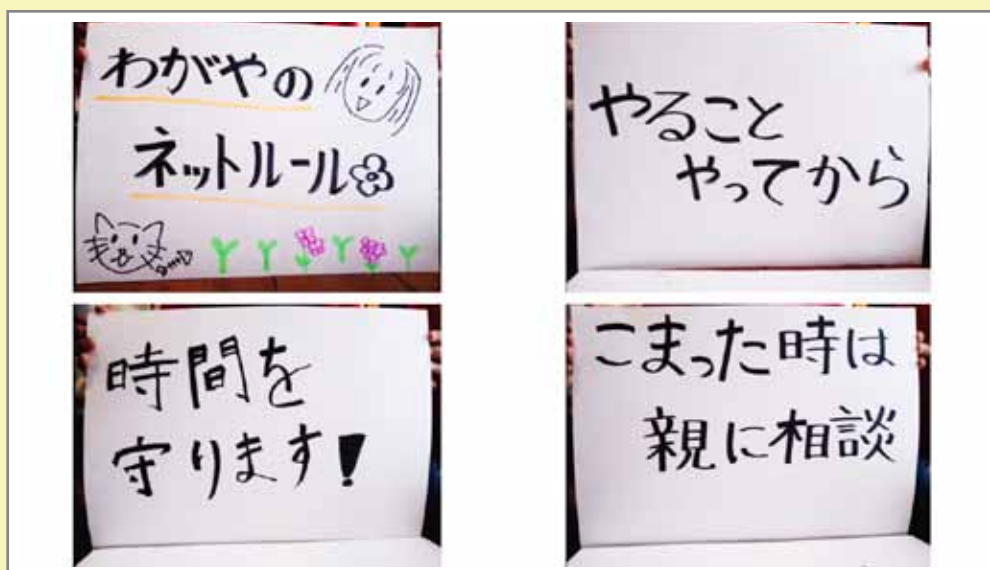 わがやの
ネットルール
やること
やってから
時間を
守ります!
こまった時は
親に相談